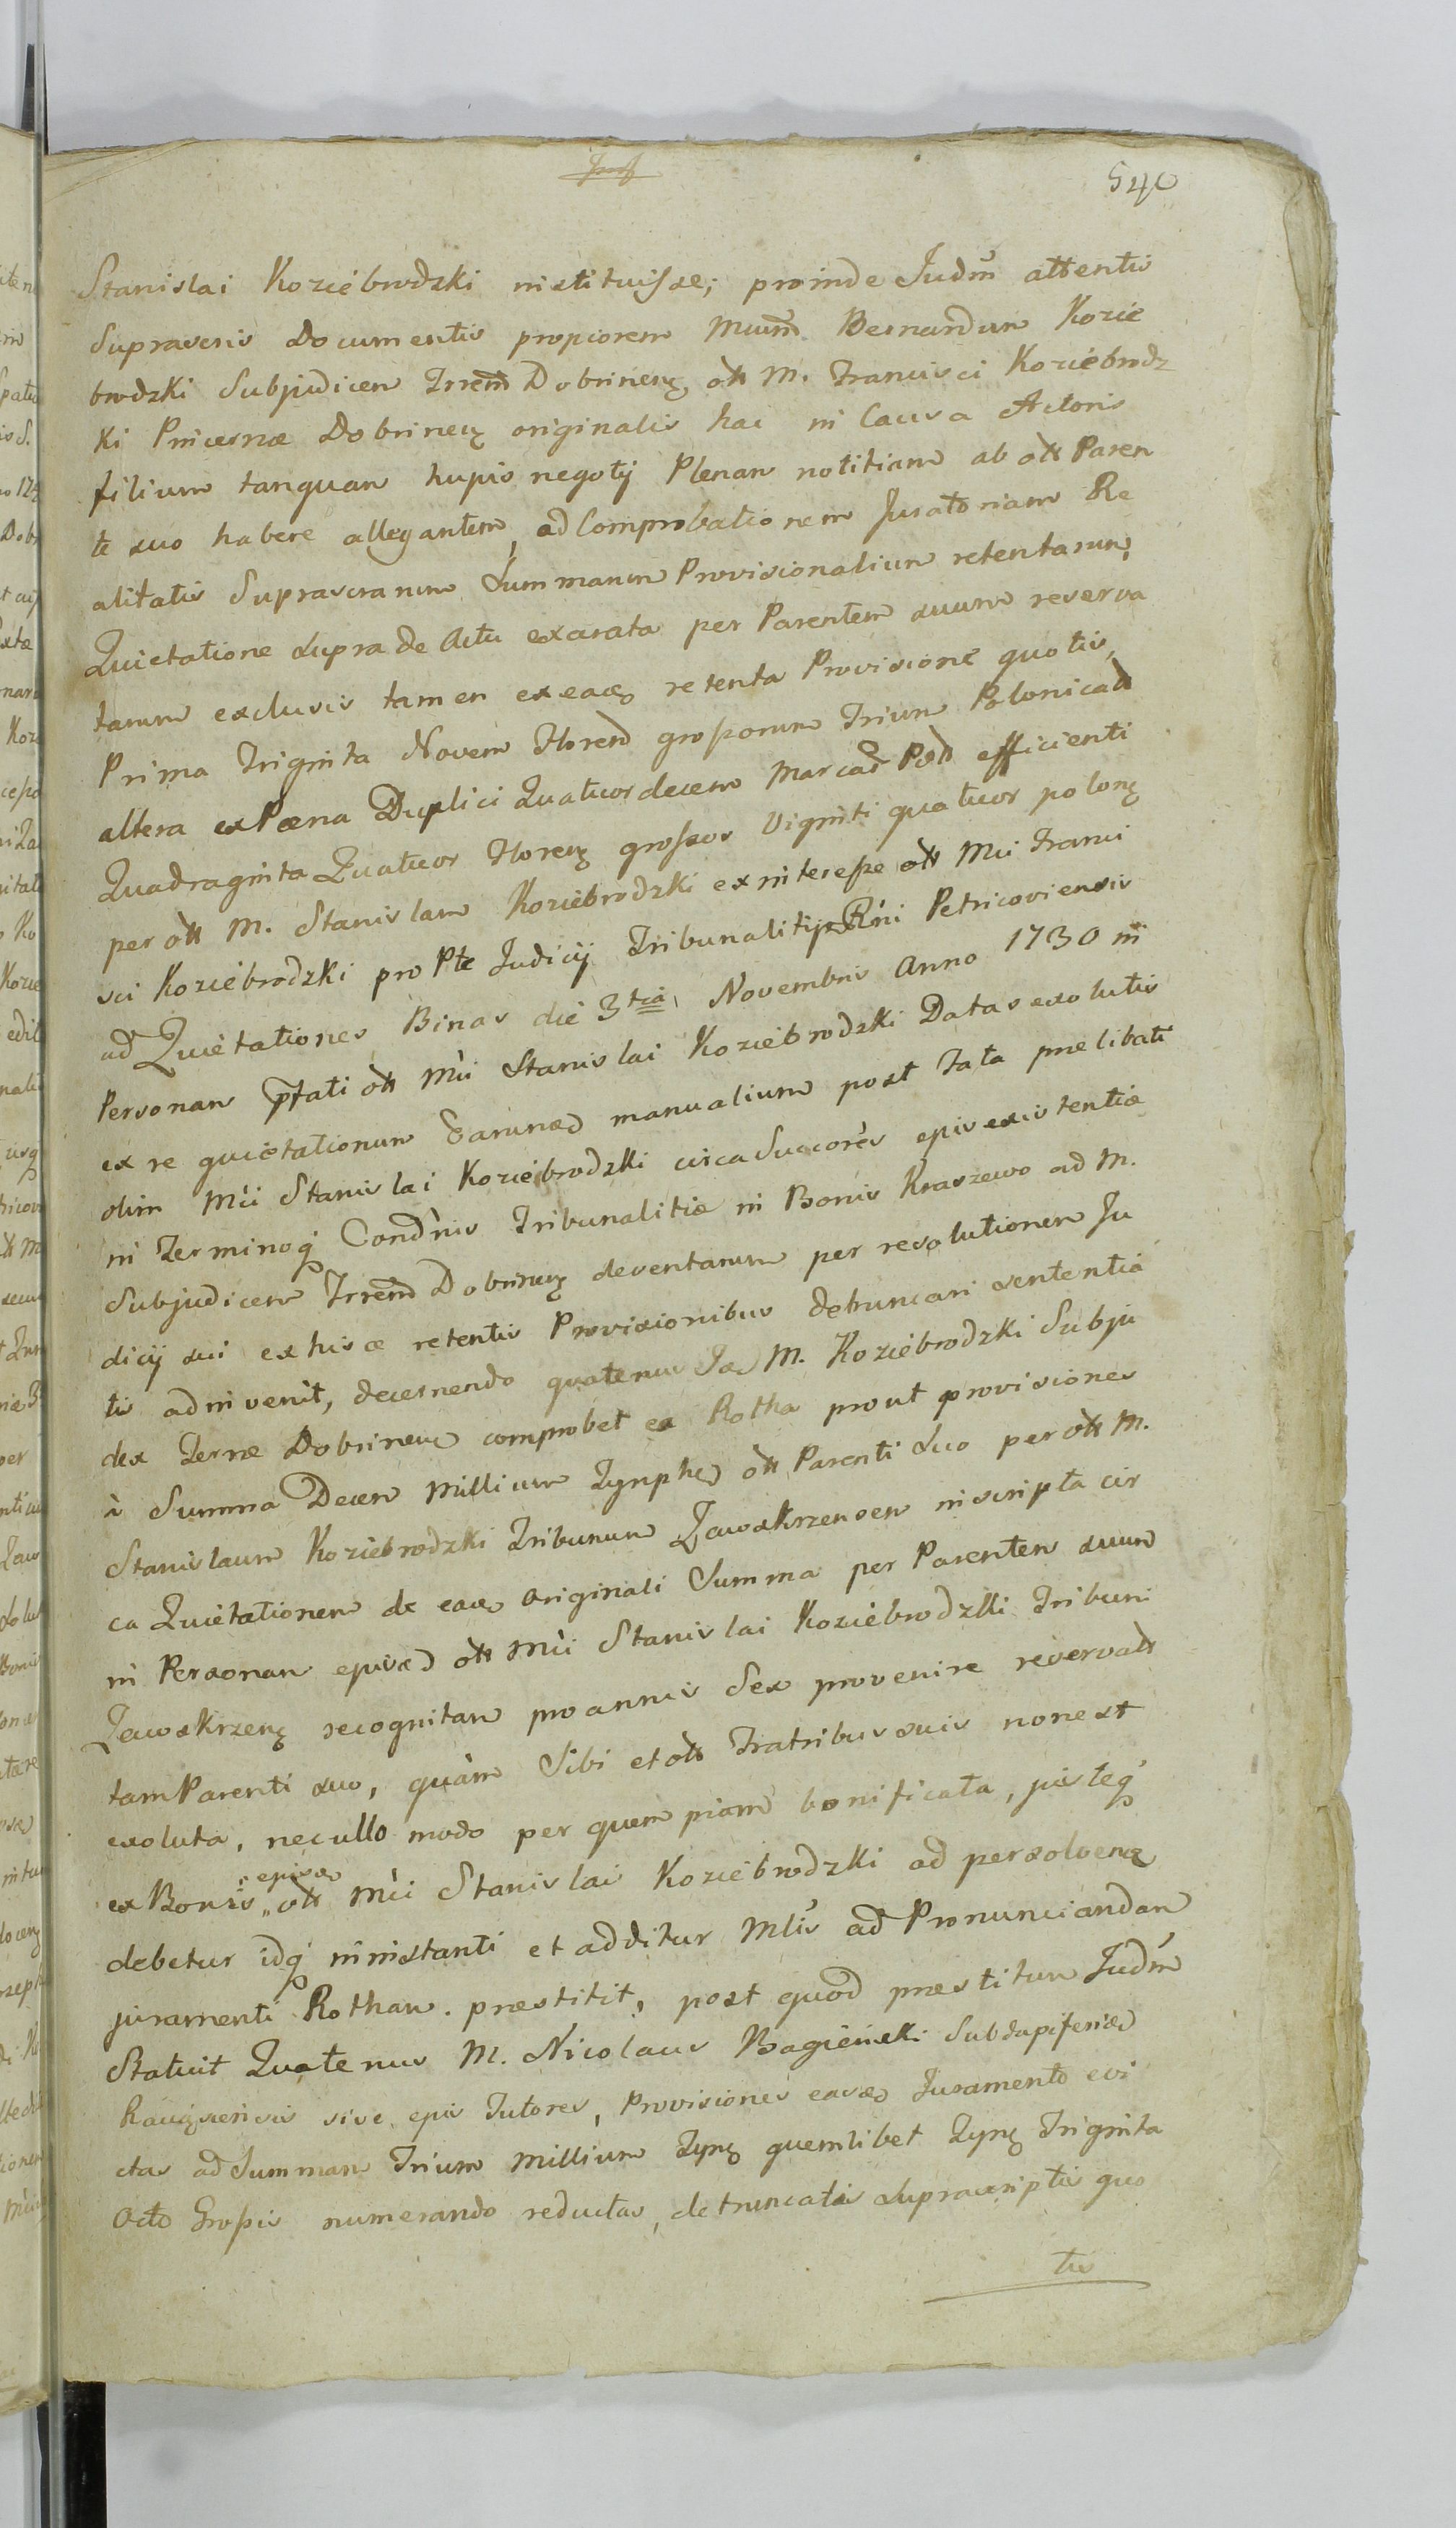 540
Stanislai Koziebrodzki instituisse; proinde Judm attentis
Suprascris Documentis propiorem Mcum Bernardum Kozie
brodzki Subjudicem Trrem Dobrinens olt M. Francisci Koziebrodz
ki Pincernæ Dobrinens originalis hac in Causa Actoris
filium tanquam hujus negotij Plenam notitiam ab olt Paren
te suo habere allegantem, ad Comprobationem Juratoriam Re
alitatis Suprascrarum Summarum Provisionalium retentarum,
Quietatione supra de Actu exarata per Parentem suum reserva
tarum exclusis tamen ex eadem retenta Provisione quotis,
Prima Triginta Novem Floren grossorum Trium Polonical
altera ex Pœna Duplici Quatuordecem Marcar Pol efficienti
Quadraginta Quatuor Floren grossos Viginti quatuor polon
per olt M. Stanislam Koziebrodzki ex interesse olt Mci Franci
sci Koziebrodzki pro Pte Judicij Tribunalitij Rni Petricoviensis
ad Quietationes Binas die 3tia Novembris Anno 1730 in
Personam Pfati olt Mci Stanislai Koziebrodzki Datas exolutis
ex re quietationum Earumd manualium post Fata prælibati
olim Mci Stanislai Koziebrodzki circa Succores ejus existentiæ
in Terminoq Condnis Tribunalitiæ in Bonis Kraszewo ad M.
Subjudicem Trrem Dobrinens deventarum per resolutionem Ju
dicij sui ex hisce retentis Provisionibus detruncari sententia
tis adinvenit, decernendo quatenus Idem M. Koziebrodzki Subju
dex Terræ Dobrinens comprobet ex Rotha prout provisiones
à Summa Decem Millium Tynph olt Parenti Suo per olt M.
Stanislaum Koziebrodzki Tribunum Zawskrzensem inscripta cir
ca Quietationem de eadem Originali Summa per Parentem suum
in Personam ejusd olt Mci Stanislai Koziebrodzki Tribuni
Zawskrzens recognitam pro annis Sex provenire reservat
tam Parenti suo, quàm Sibi et olt Fratribus suis non est
exoluta, nec ullo modo per quempiam bonificata, justeq
ex Bonis ejusd olt Mci Stanislai Koziebrodzki ad persolvend
debetur idq in instanti et additur Mlis ad Pronunciandam
juramenti Rotham. præstitit, post quod præstitum Judm
Statuit Quatenus M. Nicolaus Bagieński Subdapiferid
Raviensis sive ejus Tutores, Provisiones easd Juramento evi
ctas ad Summam Trium Millium Tynf quemlibet Tynf Triginta
Octo Grossis numerando reductas, detruncatis suprascriptis quo
tis